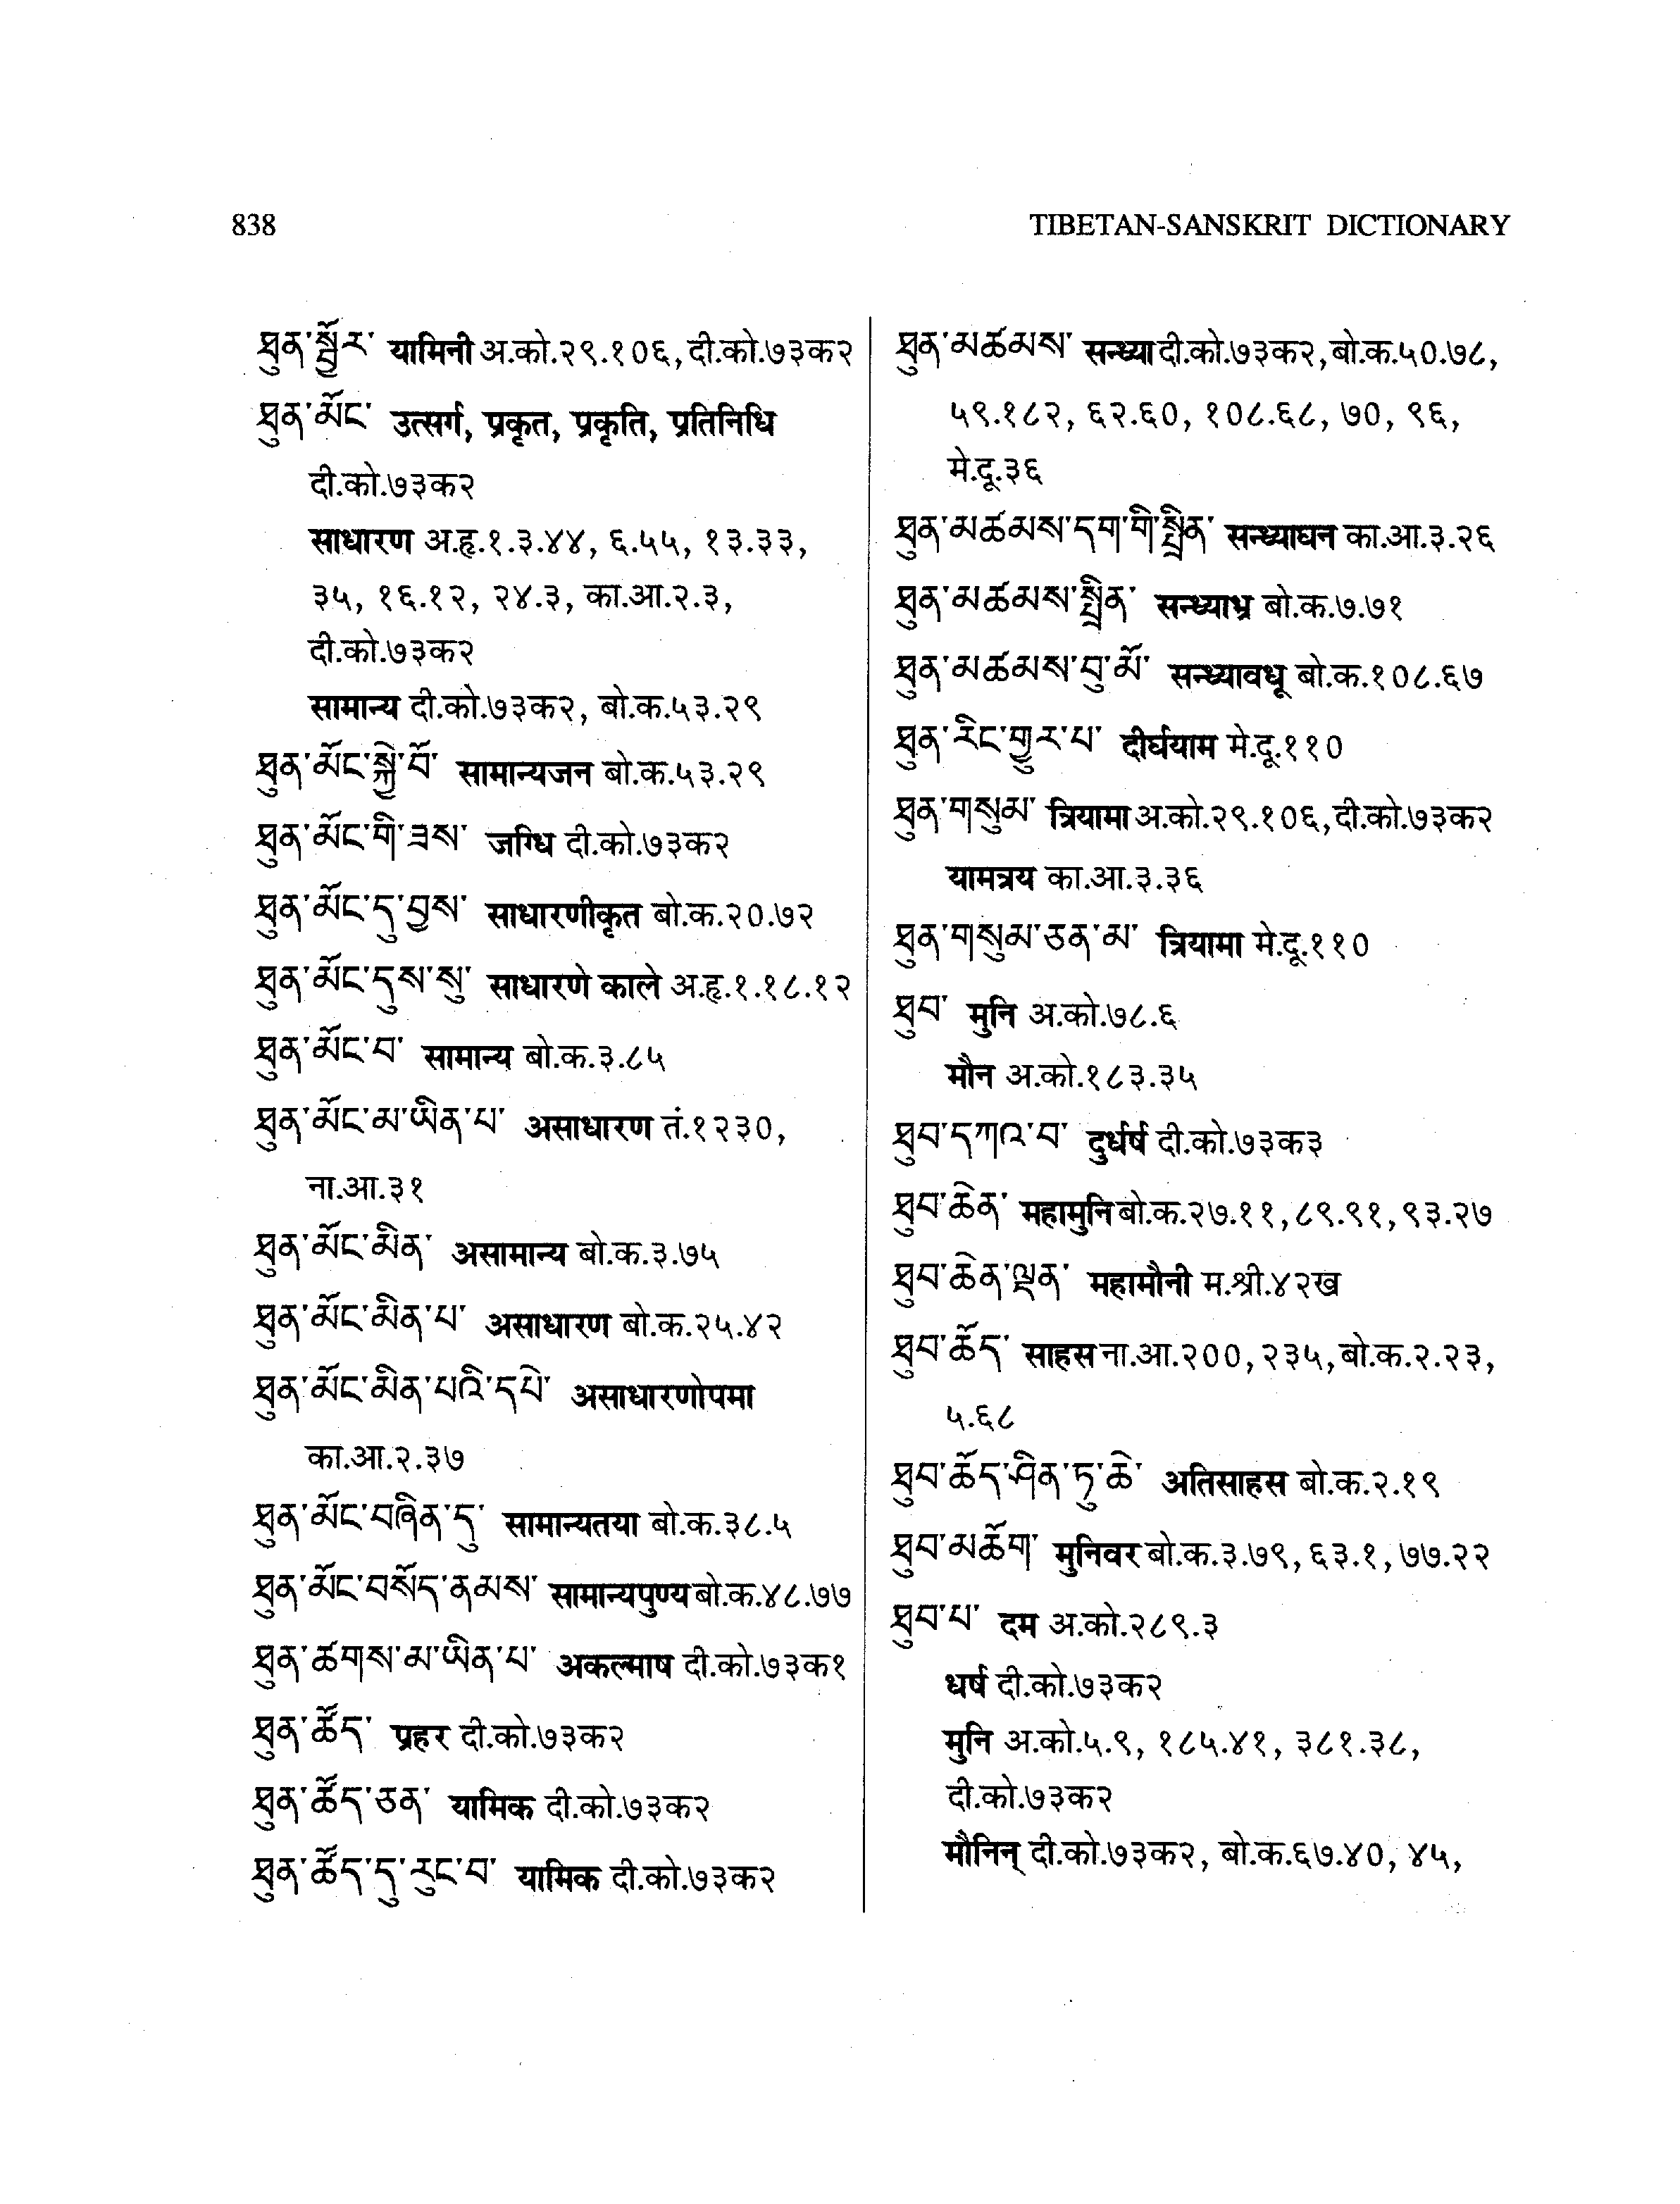 838
TIBETAN-SANSKRIT DICTIONARY
ཐུན་སྦྱོར་ यामिनी अ.को.२९.१०६, दी.को.७३क२
ཐུན་མོང་ उत्सर्ग, प्रकृत, प्रकृति, प्रतिनिधि
दी.को.७३क२
साधारण अ.हृ.१.३.४४, ६.५५, १३.३३,
३५, १६.१२, २४.३, का.आ.२.३,
दी.को.७३क२
सामान्य दी.को.७३क२, बो.क.५३.२९
ཐུན་མོང་སྐྱེ་བོ་ सामान्यजन बो.क.५३.२९
ཐུན་མོང་གི་ཟས་ जग्धि दी.को.७३क२
ཐུན་མོང་དུ་བྱས་ साधारणीकृत बो.क.२०.७२
ཐུན་མོང་དུས་སུ་ साधारणे काले अ.हृ.१.१८.१२
ཐུན་མོང་བ་ सामान्य बो.क.३.८५
ཐུན་མོང་མ་ཡིན་པ་ असाधारण तं.१२३०,
ना.आ.३१
ཐུན་མོང་མིན་ असामान्य बो.क.३.७५
ཐུན་མོང་མིན་པ་ असाधारण बो.क.२५.४२
ཐུན་མོང་མིན་པའི་དཔེ་ असाधारणोपमा
का.आ.२.३७
ཐུན་མོང་བཞིན་དུ་ सामान्यतया बो.क.३८.५
ཐུན་མོང་བསོད་ནམས་ सामान्यपुण्य बो.क.४८.७७
ཐུན་ཚགས་མ་ཡིན་པ་ अकल्माष दी.को.७३क१
ཐུན་ཚོད་ प्रहर दी.को.७३क२
ཐུན་ཚོད་ཅན་ यामिक दी.को.७३क२
ཐུན་ཚོད་དུ་རུང་བ་ यामिक दी.को.७३क२
ཐུན་མཚམས་ सन्ध्या दी.को.७३क२, बो.क.५०.७८,
५९.१८२, ६२.६०, १०८.६८, ७०, ९६,
मे.दू.३६
ཐུན་མཚམས་དག་གི་སྤྲིན་ सन्ध्याघन का.आ.३.२६
ཐུན་མཚམས་སྤྲིན་ सन्ध्याभ्र बो.क.७.७१
ཐུན་མཚམས་བུ་མོ་ सन्ध्यावधू बो.क.१०८.६७
ཐུན་རིང་གྱུར་པ་ दीर्घयाम मे.दू.११०
ཐུན་གསུམ་ त्रियामा अ.को.२९.१०६, दी.को.७३क२
यामत्रय का.आ.३.३६
ཐུན་གསུམ་ཅན་མ་ त्रियामा मे.दू.११०
ཐུབ་ मुनि अ.को.७८.६
मौन अ.को.१८३.३५
ཐུབ་དཀའ་བ་ दुर्धर्ष दी.को.७३क३
ཐུབ་ཆེན་ महामुनि बो.क.२७.११, ८९.९१, ९३.२७
ཐུབ་ཆེན་ལྡན་ महामौनी म.श्री.४२ख
ཐུབ་ཆོད་ साहस ना.आ.२००, २३५, बो.क.२.२३,
५.६८
ཐུབ་ཆོད་ཤིན་ཏུ་ཆེ་ अतिसाहस बो.क.२.१९
ཐུབ་མཆོག་ मुनिवर बो.क.३.७९, ६३.१, ७७.२२
ཐུབ་པ་ दम अ.को.२८९.३
धर्ष दी.को.७३क२
मुनि अ.को.५.९, १८५.४१, ३८१.३८,
दी.को.७३क२
मौनिन् दी.को.७३क२, बो.क.६७.४०, ४५,